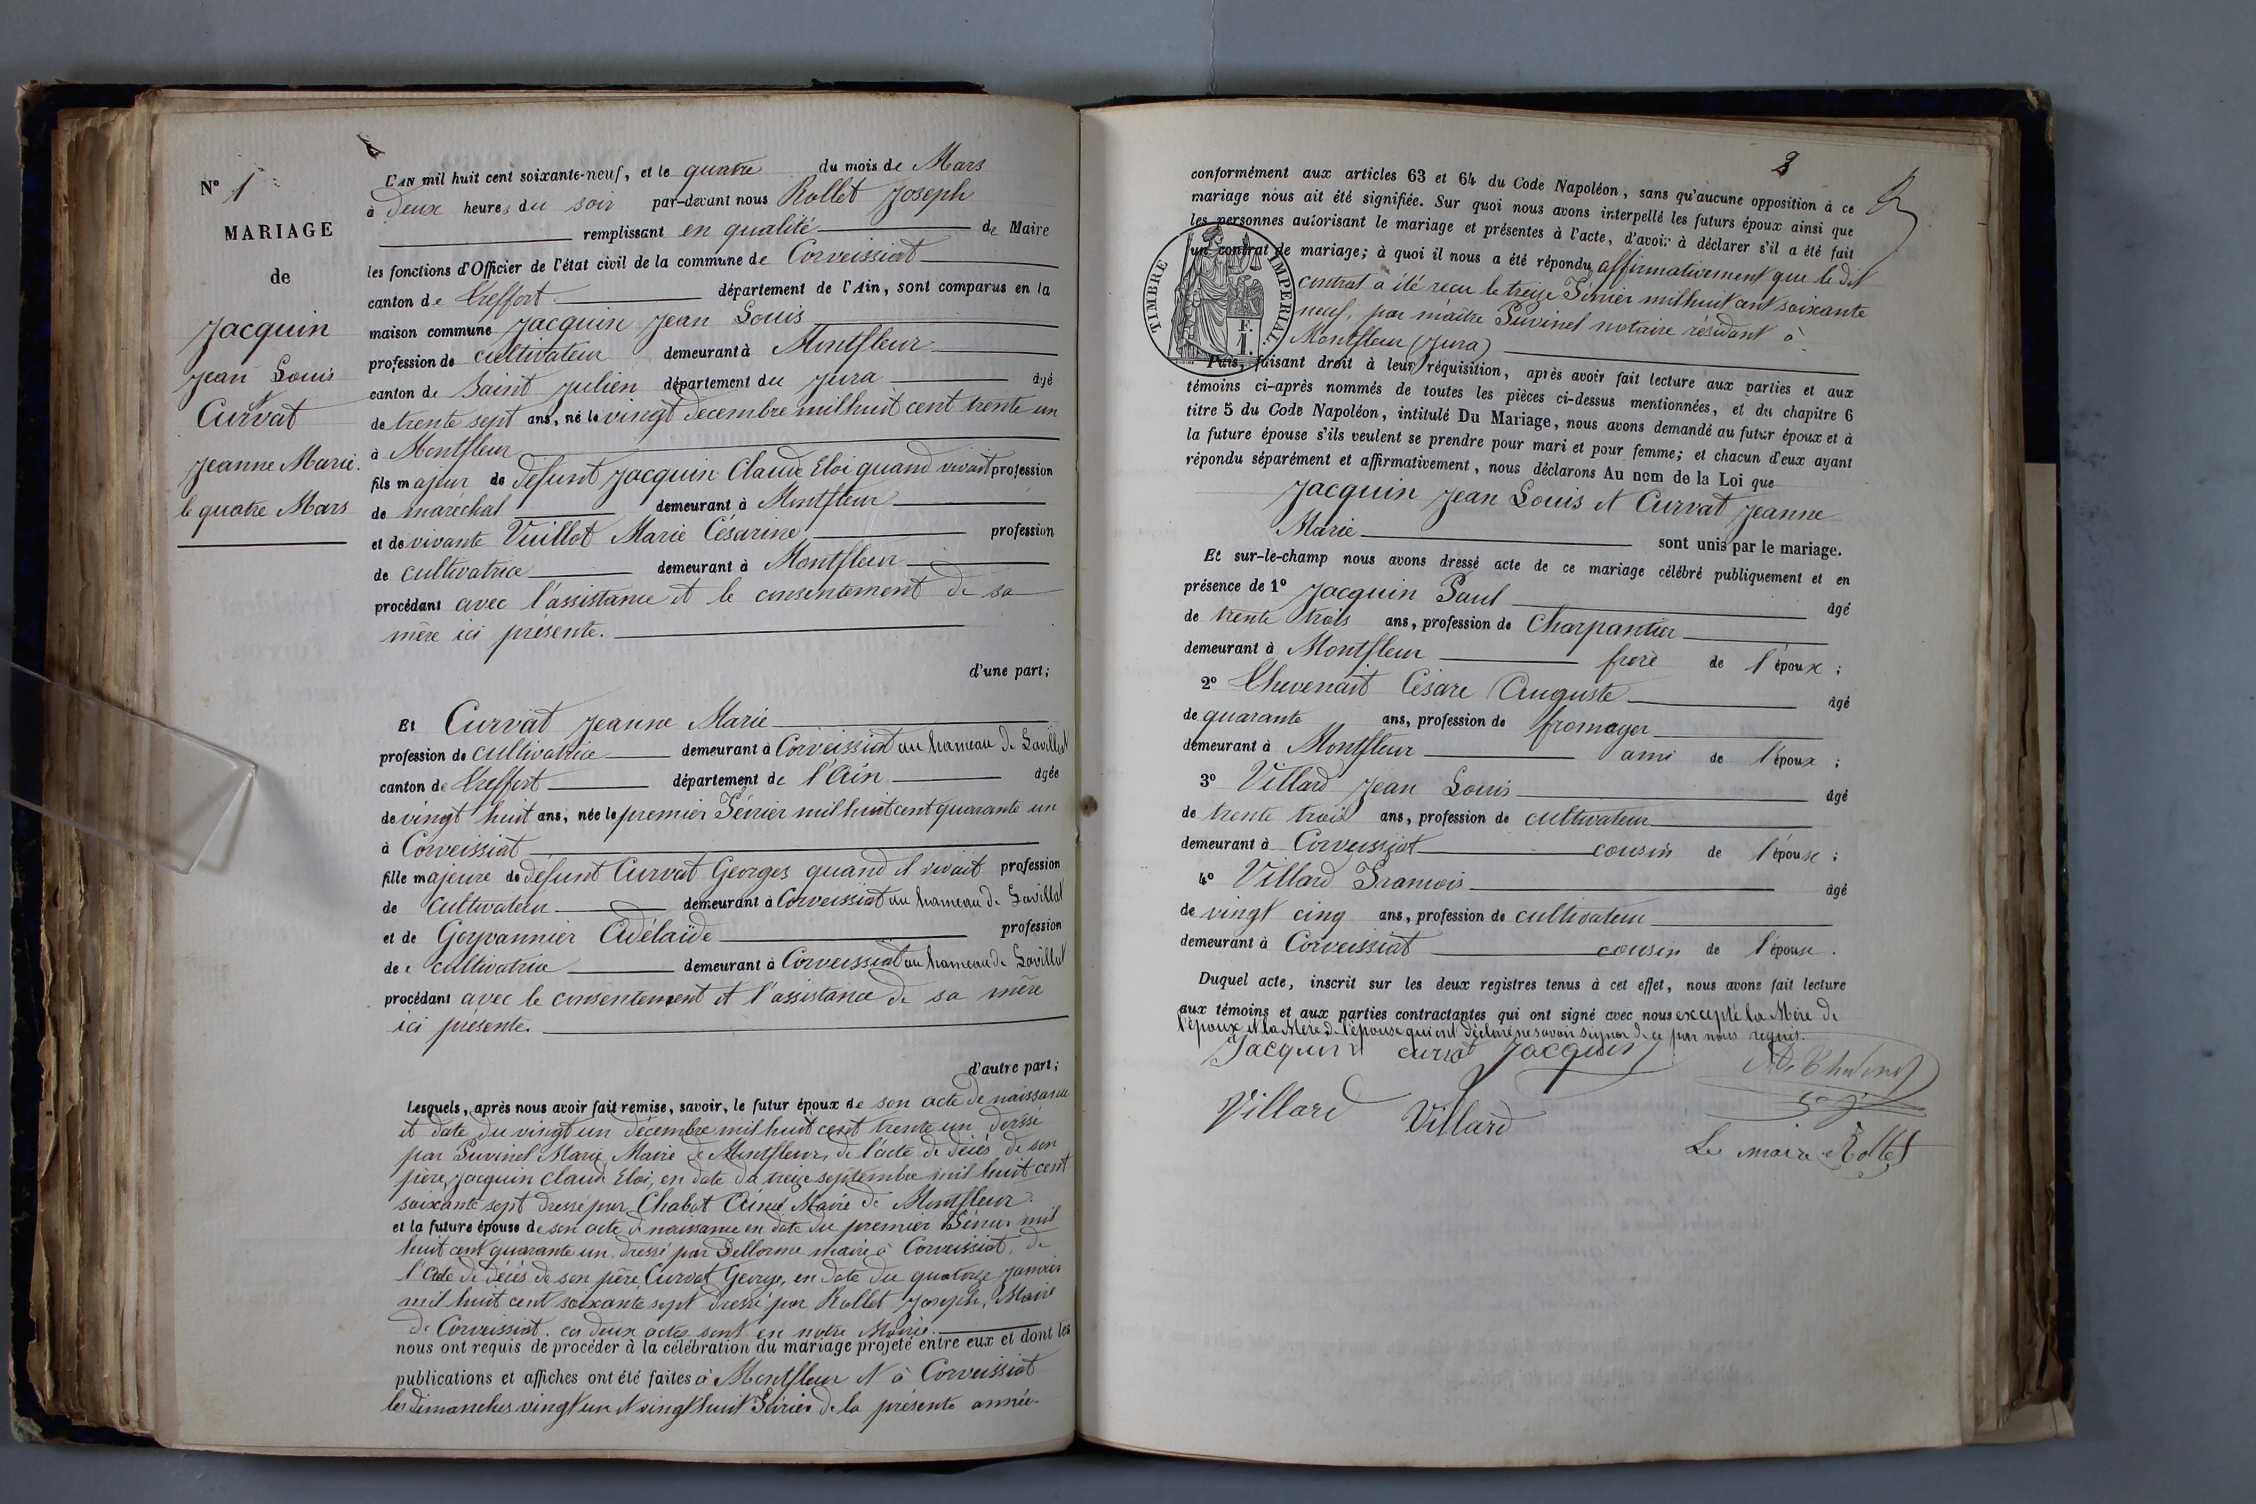 N° 1
MARIAGE
de
Jacquin
Jean Louis
et
Curvat
Jeanne Marie.
le quatre Mars
L'AN mil huit cent soixante-neuf, et le quatre du mois de Mars
à deux heures du soir par-devant nous Rollet Joseph
remplissant en qualité de Maire
les fonctions d'Officier de l'état civil de la commune de Corveissiat
canton de Treffort département de l'Ain, sont comparus en la
maison commune Jacquin Jean Louis
profession de cultivateur demeurant à Montfleur
canton de Saint Julien département du Jura âgé
de trente sept ans, né le vingt décembre mil huit cent trente un
à Montfleur
fils majeur de défunt Jacquin Claude Eloi quand vivait profession
de maréchal demeurant à Montfleur
et de vivante Vuillot Marie Césarine profession
de cultivatrice demeurant à Montfleur
procédant avec l'assistance et le consentement de sa
mère ici présente.
d'une part;
Et Curvat Jeanne Marie
profession de cultivatrice demeurant à Corveissiat au hameau de Lavillat
canton de Treffort département de l'Ain âgée
de vingt huit ans, née le premier Février mil huit cent quarante un
à Corveissiat
fille majeure de défunt Curvat Georges quand il vivait profession
de cultivateur demeurant à Corveissiat au hameau de Lavillat
et de Adélaïde profession
de cultivatrice demeurant à Corveissiat au hameau de Lavillat
procédant avec le consentement et l'assistance de sa mère
ici présente.
d'autre part;
Lesquels, après nous avoir fait remise, savoir, le futur époux de son acte de naissance
et date du vingt un décembre mil huit cent trente un dressé
par Puvinel Marie Maire de Montfleur, de l'acte de décès de son
père, Jacquin Claude Eloi, en date du treize septembre mil huit cent
soixante sept dressé par Chabot Aimé Maire de Montfleur.
et la future épouse de son acte de naissance en date du premier Février mil
huit cent quarante un dressé par Dellorme maire à Corveissiat, de
l'acte de décès de son père Curvat George, en date du quatorze janvier
mil huit cent soixante sept dressé par Rollet Joseph, Maire
de Corveissiat. ces deux actes sont en notre Mairie.
nous ont requis de procéder à la célébration du mariage projeté entre eux et dont les
publications et affiches ont été faites à Montfleur et à Corveissiat
les dimanches vingt un et vingt huit Février de la présente année
2
conformément aux articles 63 et 64 du Code Napoléon, sans qu'aucune opposition à ce
mariage nous ait été signifiée. Sur quoi nous avons interpellé les futurs époux ainsi que
les personnes autorisant le mariage et présentes à l'acte, d'avoir à déclarer s'il a été fait
un contrat de mariage; à quoi il nous a été répondu affirmativement que le dit
contrat a été reçu le treize Février mil huit cent soixante
neuf, par maître Puvinel notaire résidant à
Montfleur (Jura)
TIMBRE IMPERIAL
F.
1.
Puis, faisant droit à leur réquisition, après avoir fait lecture aux parties et aux
témoins ci-après nommés de toutes les pièces ci-dessus mentionnées, et du chapitre 6
titre 5 du Code Napoléon, intitulé Du Mariage, nous avons demandé au futur époux et à
la future épouse s'ils veulent se prendre pour mari et pour femme; et chacun d'eux ayant
répondu séparément et affirmativement, nous déclarons Au nom de la Loi que
Jacquin Jean Louis et Curvat Jeanne
Marie sont unis par le mariage.
Et sur-le-champ nous avons dressé acte de ce mariage célébré publiquement et en
présence de 1° Jacquin Paul âgé
de trente trois ans, profession de Charpantier
demeurant à Montfleur frère de l'époux;
2° Thevenait Césare Auguste âgé
de quarante ans, profession de fromager
demeurant à Montfleur ami de l'époux;
3° Villard Jean Louis âgé
de trente trois ans, profession de cultivateur
demeurant à Corveissiat cousin de l'épouse;
4° Villard François âgé
de vingt cinq ans, profession de cultivateur
demeurant à Corveissiat cousin de l'épouse.
Duquel acte, inscrit sur les deux registres tenus à cet effet, nous avons fait lecture
aux témoins et aux parties contractantes qui ont signé avec nous excepté la Mère de
l'époux et la Mère de l'épouse qui ont déclaré ne savoir signer de ce par nous requis.
Jacquin curvat Jacquin
Villard Villard
Le maire Rollet